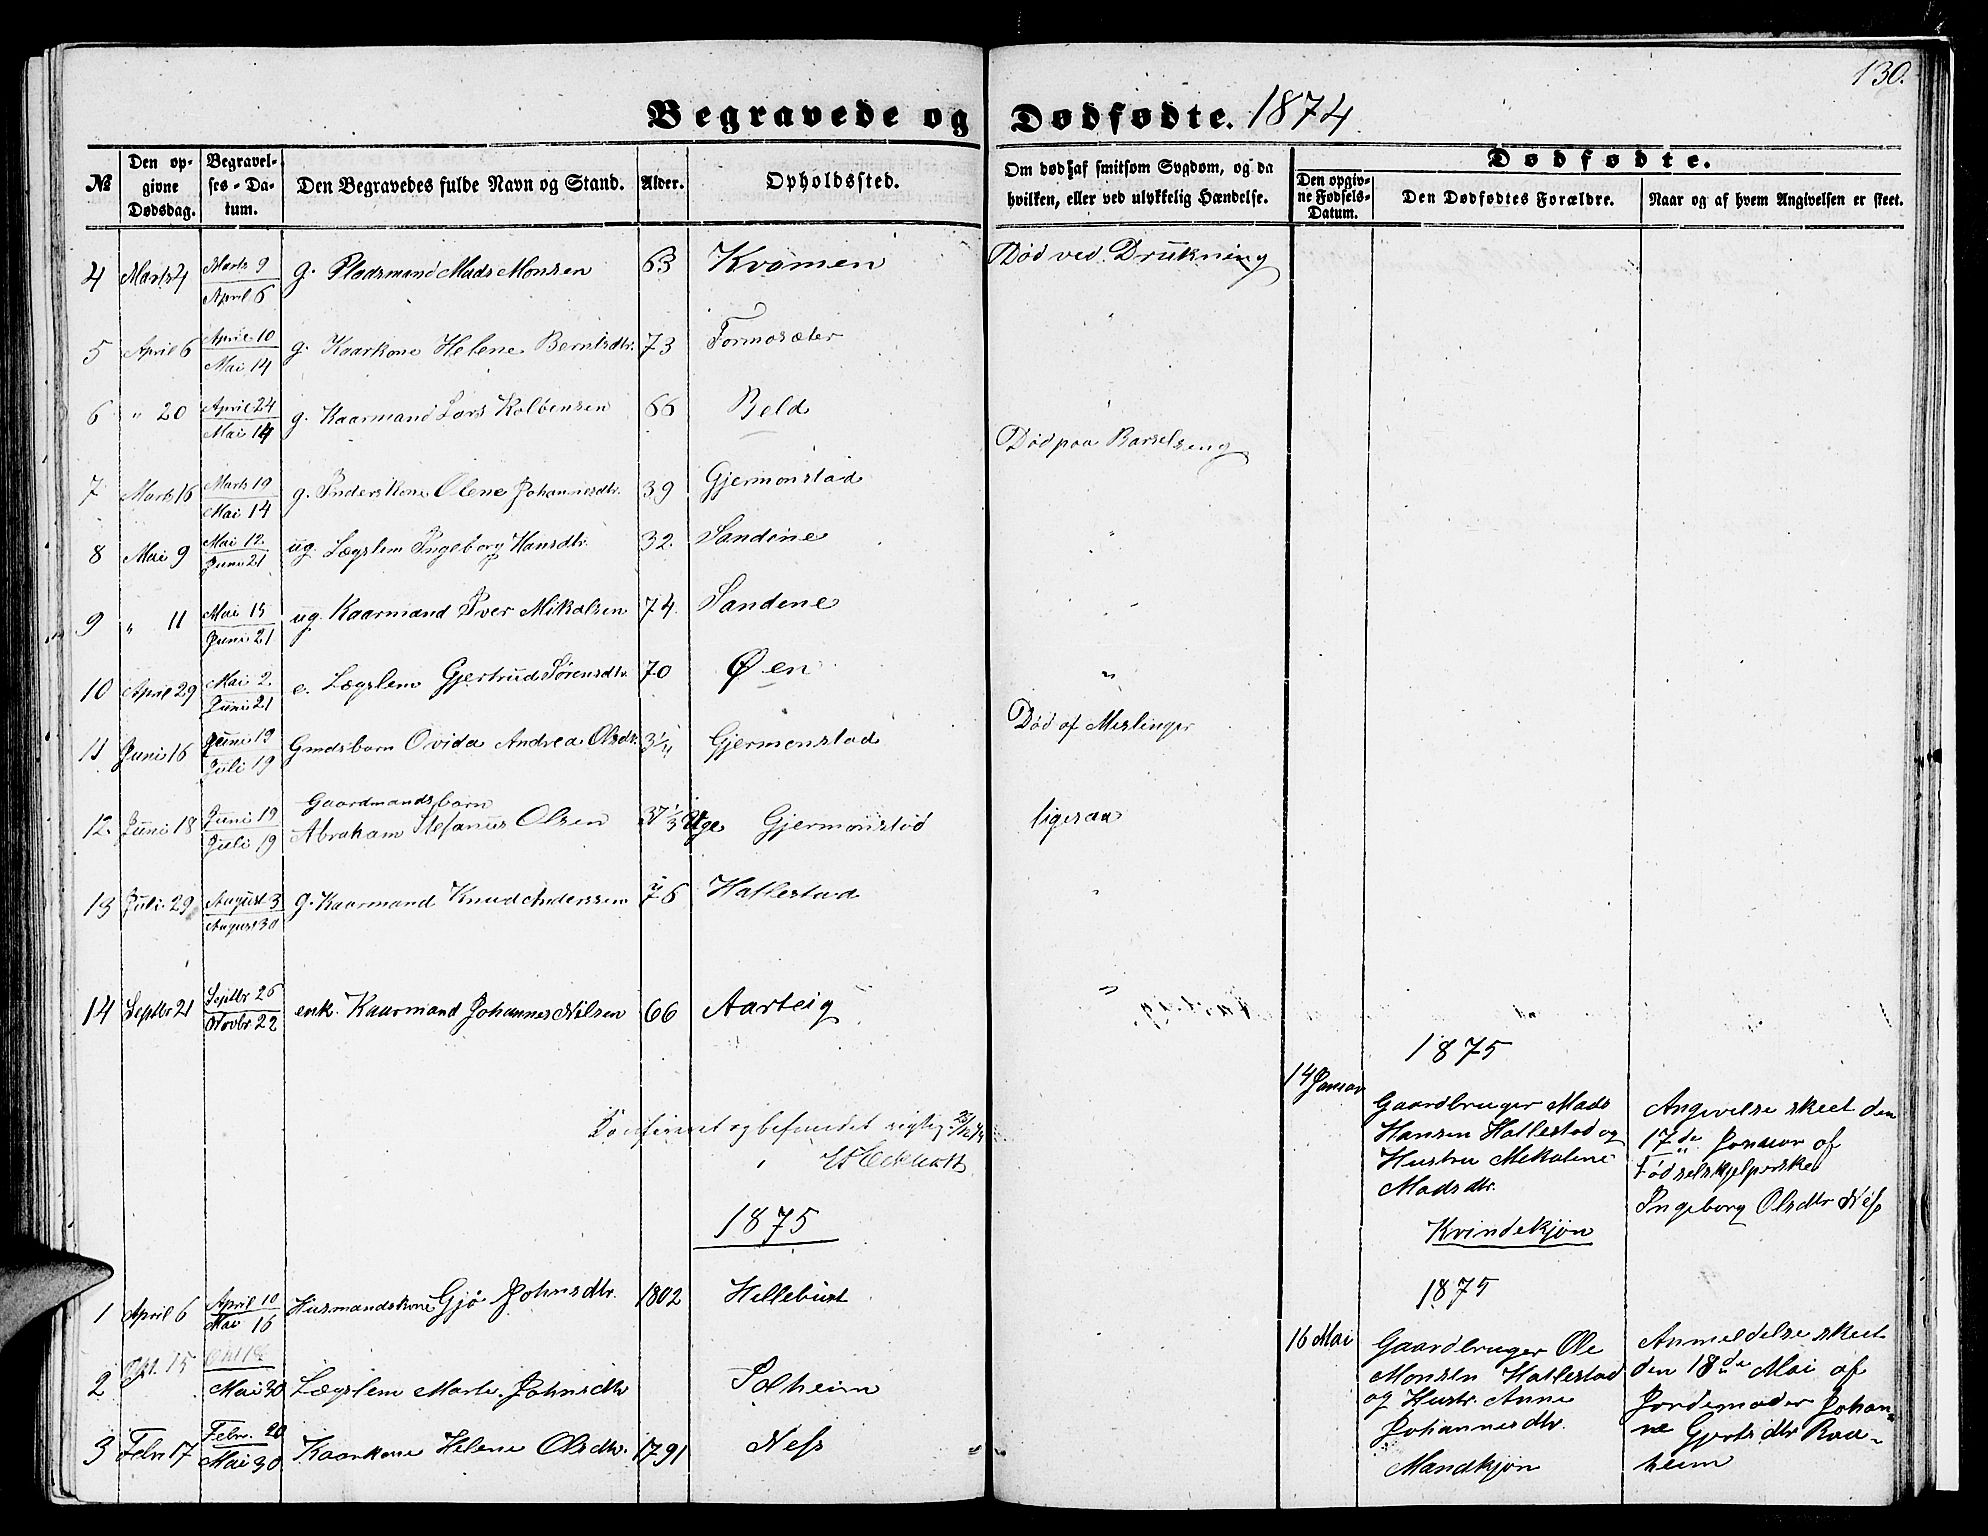 130.
Begravede og Dødfødte. 1874.
№ Den opgivne Dødsdag. Begravelses-Datum. Den Begravedes fulde Navn og Stand. Alder. Opholdssted. Om død af smitsom Sygdom, og da hvilken, eller ved ulykkelig Hændelse. Dødfødte. Den opgivne Fødsels-Datum. Den Dødfødtes Forældre. Naar og af hvem Angivelsen er skeet.
4 Marts 4 Marts 9 April 6 g. Pladsmand Mads Monsen 63 Kvamen Død ved Drukning
5 April 6 April 10 Mai 14 g. Kaarkone Helene Berntsdtr. 73 Formosæter "
6 " 20 April 24 Mai 14 g. Kaarmand Lars Kolbensen 66 Beld "
7 Marts 16 Marts 19 Mai 14 g. Inderskone Olene Johannesdtr. 39 Gjermonstad Død paa Barselseng
8 Mai 9 Mai 12. Juni 21 ug. Lægslem Ingeborg Hansdtr. 32. Sandene "
9 " 11 Mai 15 Juni 21 ug. Kaarmand Iver Mikalsen 74. Sandene "
10 April 29 Mai 2. Juni 21 e. Lægslem Gjertrud Sørensdtr. 70 Øen "
11 Juni 16 Juni 19 Juli 19 Gmdsbarn Ovida Andrea Olsdr. 3 1/4 Gjermonstad Død af Meslinger
12. Juni 18 Juni 19 Juli 19 Gaardmandsbarn
Abraham Stefanus Olsen 37 1/3 Uge Gjermonstad ligesaa
13 Juli 29 August 3 August 30 g. Kaarmand Knud Anderssen 76 Hatlestad "
14 Septbr 21 Septbr 26 Novbr 22 enk. Kaarmand Johannes Nilsen 66 Aarteig "
1875
14 Januar Gaardbruger Mads Angivelse skeet den
Hansen Hatlestad og 17de Januar af
Hustru Mekaline Fødselshjelperske
Madsdtr. Ingeborg Olsdtr Ness
Kvindekjøn
Konfereret og befundet rigtig
1875
1 April 6 April 10 Mai 16 Husmandskone Gjø Johnsdtr. 1802 Hellebust
2 Okt. 15 Mai 30 Lægslem Marte Johnsdtr Solheim
3 Febr 17 Febr. 20 Mai 30 Kaarkone Helene Olsdtr. 1791 Ness "
1875
16 Mai Gaardbruger Ole Anmeldelse skeet
Monsen Hatlestad den 18de Mai af
og Hustr. Anne Jordemoder Johan-
Johannesdtr. ne Gjertsdtr Raa-
Mandkjøn heim